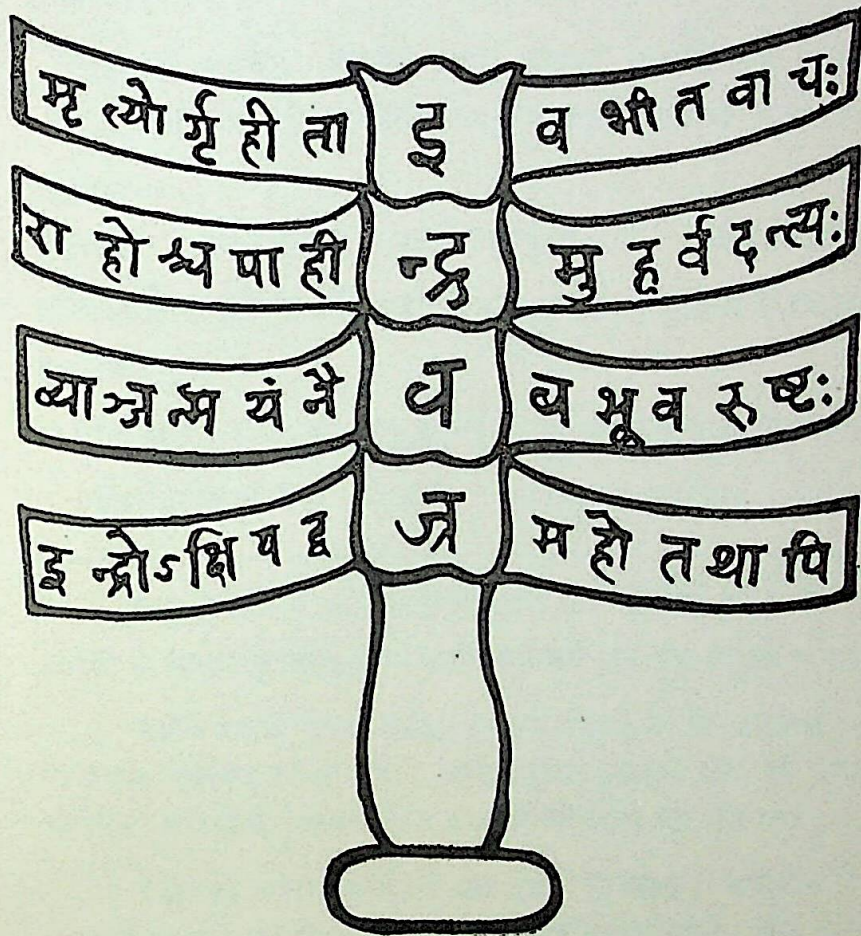 मृत्योर्गृहीता इ व भीतवाचः
राहोश्च पाही न्द्र मुहुर्वदन्त्यः
यं नै व बभूव रुष्टः
इन्द्रोऽक्षिपद्व ज्र महो तथापि